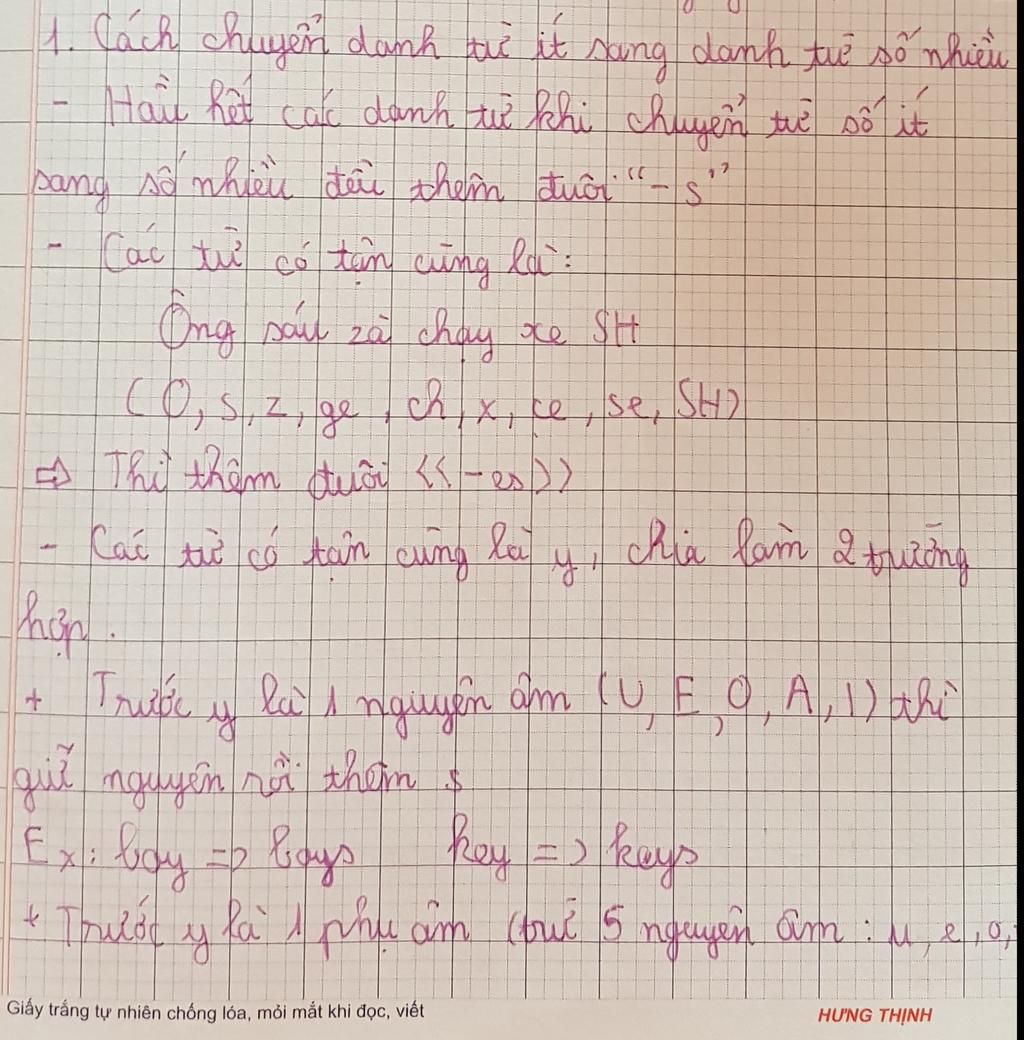 1. Cách chuyển danh từ ít sang danh từ số nhiều
- Hầu hết các danh từ khi chuyển từ số ít
sang số nhiều đều thêm đuôi "-s"
- Các từ có tận cùng là:
Ông sáu zà chạy xe SH
(O, s, z, ge, ch, x, ce, se, SH)
⇒ Thì thêm đuôi <<-es>>
- Các từ có tận cùng là y, chia làm 2 trường
hợp.
+ Trước y là 1 nguyên âm (U, E, O, A, I) thì
giữ nguyên rồi thêm s
Ex: boy => boys key => keys
+ Trước y là 1 phụ âm (trừ 5 nguyên âm: u, e, o,
Giấy trắng tự nhiên chống lóa, mỏi mắt khi đọc, viết
HƯNG THỊNH